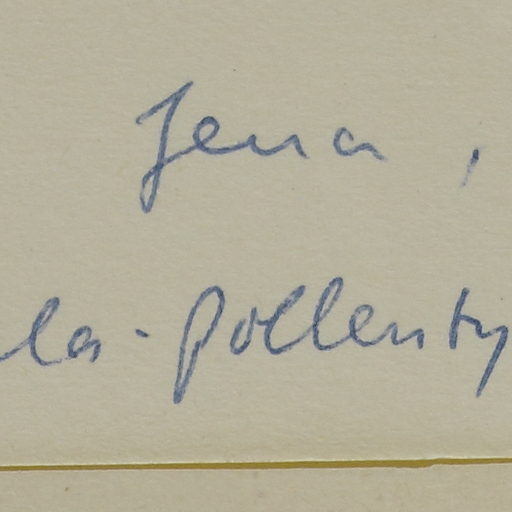 Jena,
la-Pollenty